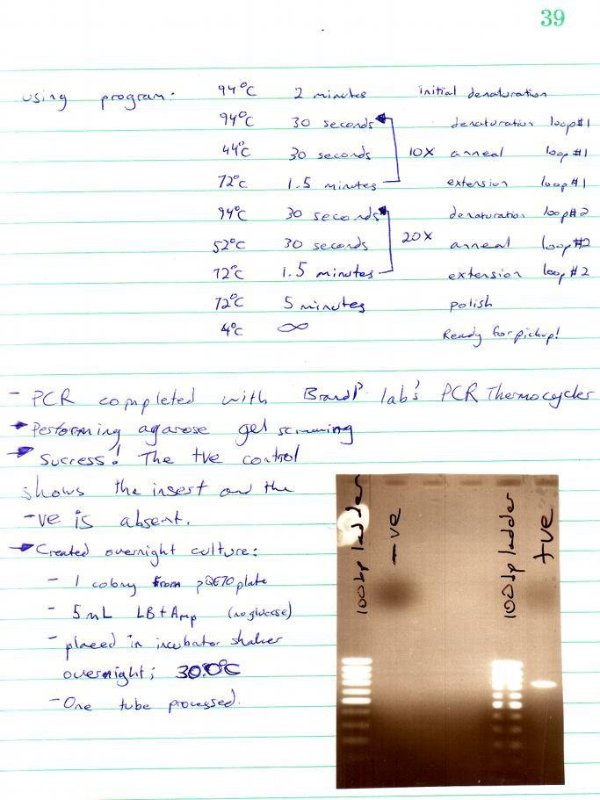 39
using program: 94°C 2 minutes initial denaturation
94°C 30 seconds denaturation loop#1
44°C 30 seconds 10X anneal loop#1
72°C 1.5 minutes extension loop#1
94°C 30 seconds denaturation loop#2
52°C 30 seconds 20X anneal loop#2
72°C 1.5 minutes extension loop#2
72°C 5 minutes polish
4°C ∞ Ready for pickup!
- PCR completed with Brandl lab's PCR Thermocycler
Performing agarose gel screening
Success! The +ve control
shows the insert and the
-ve is absent.
Created overnight culture:
- 1 colony from pQE70 plate
- 5mL LB+Amp (no glucose)
- placed in incubator shaker
overnight; 30.0°C
- One tube processed.
100bp ladder
-ve
100bp ladder
+ve